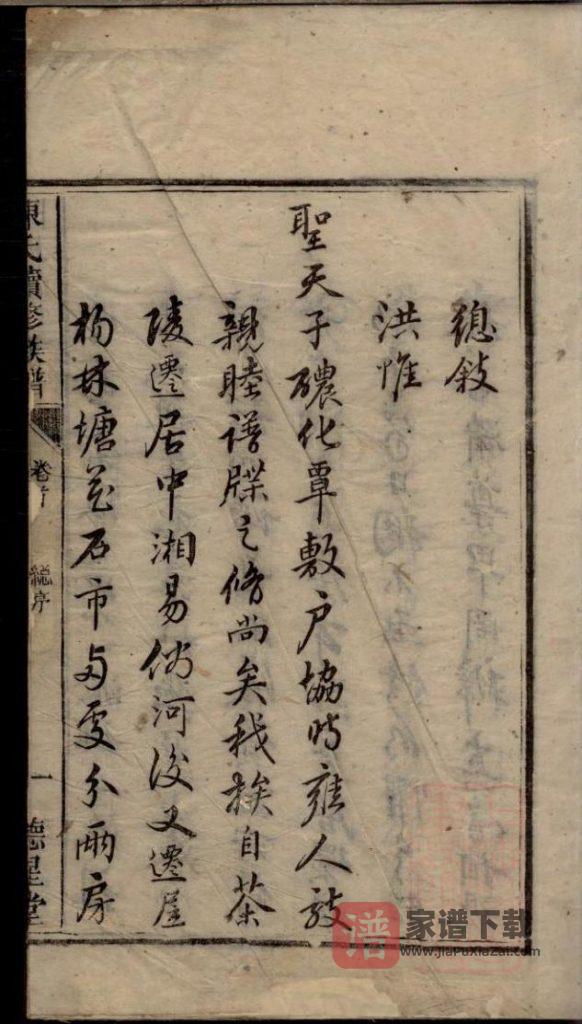 總敍
洪惟
聖天子醲化覃敷戶協時雍人敦
親睦譜牒之修尚矣我族自茶
陵遷居中湘易俗河後又遷居
楊林塘花石市與雯分兩房
陳氏續修族譜 卷首 總序 一 德星堂
家谱下载
www.jiapuxiazai.com
谱